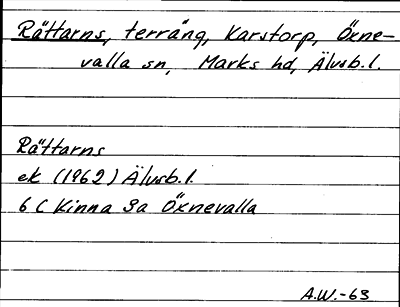 Rättarns, terräng, Karstorp, Ökne-
valla sn, Marks hd, Älvsb.l.
Rättarns
ek (1962) Älvsb.l.
6 C Kinna 3a Öxnevalla
A.W.-63